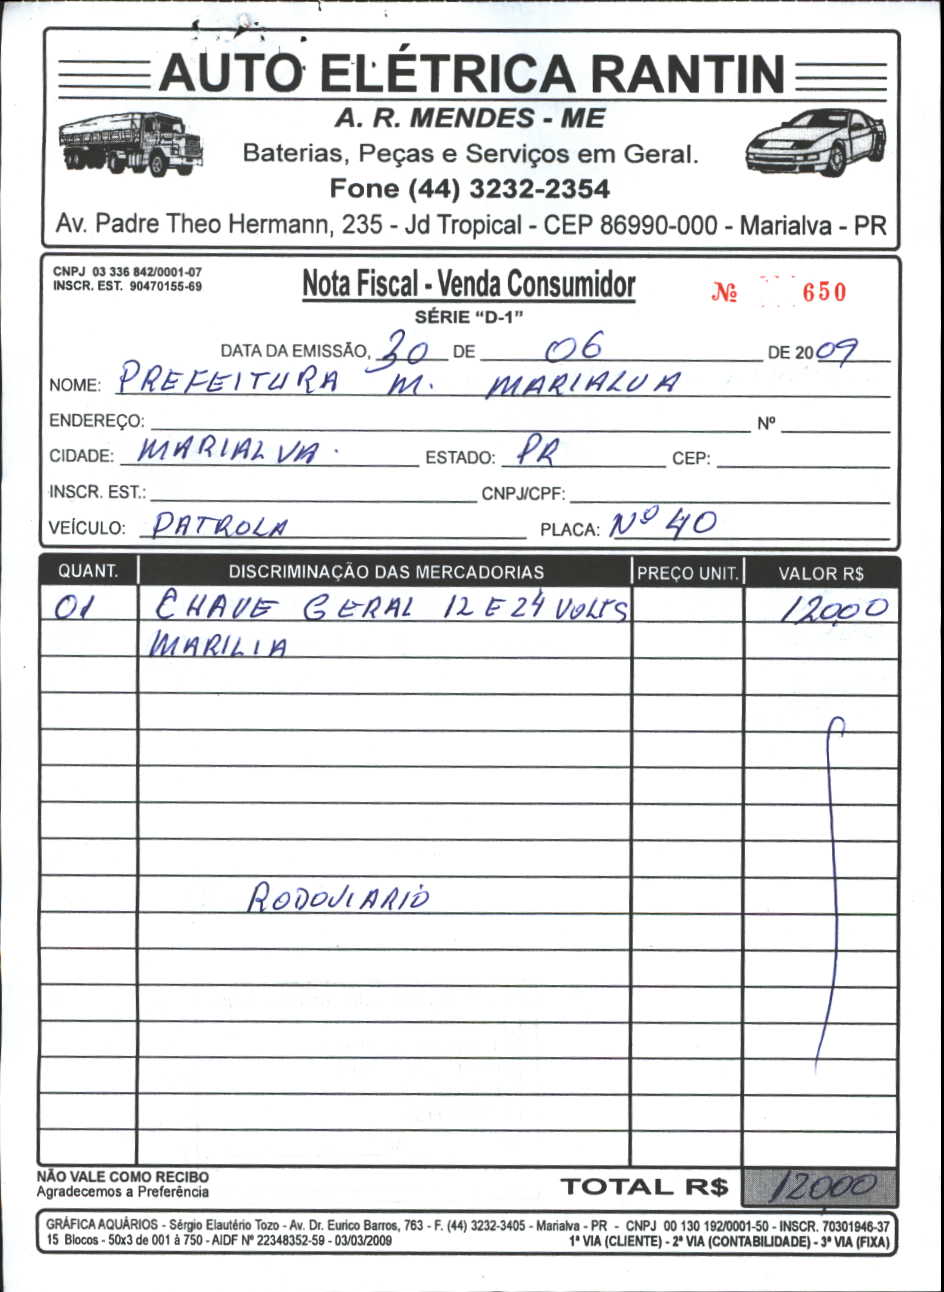 AUTO ELÉTRICA RANTIN
A. R. MENDES - ME
Baterias, Peças e Serviços em Geral.
Fone (44) 3232-2354
Av. Padre Theo Hermann, 235 - Jd Tropical - CEP 86990-000 - Marialva - PR
CNPJ 03 336 842/0001-07
INSCR. EST. 90470155-69
Nota Fiscal - Venda Consumidor
Nº 650
SÉRIE "D-1"
DATA DA EMISSÃO, 30 DE 06 DE 2009
NOME: PREFEITURA M. MARIALVA
ENDEREÇO: Nº
CIDADE: MARIALVA. ESTADO: PR CEP:
INSCR. EST.: CNPJ/CPF:
VEÍCULO: PATROLA PLACA: Nº 40
QUANT. DISCRIMINAÇÃO DAS MERCADORIAS PREÇO UNIT. VALOR R$
01 CHAVE GERAL 12 E 24 VOLTS 120,00
MARILIA
RODOVIARIO
NÃO VALE COMO RECIBO
Agradecemos a Preferência
TOTAL R$ 120,00
GRÁFICA AQUÁRIOS - Sérgio Elautério Tozo - Av. Dr. Eurico Barros, 763 - F. (44) 3232-3405 - Marialva - PR - CNPJ 00 130 192/0001-50 - INSCR. 70301946-37
15 Blocos - 50x3 de 001 à 750 - AIDF Nº 22348352-59 - 03/03/2009 1ª VIA (CLIENTE) - 2ª VIA (CONTABILIDADE) - 3ª VIA (FIXA)